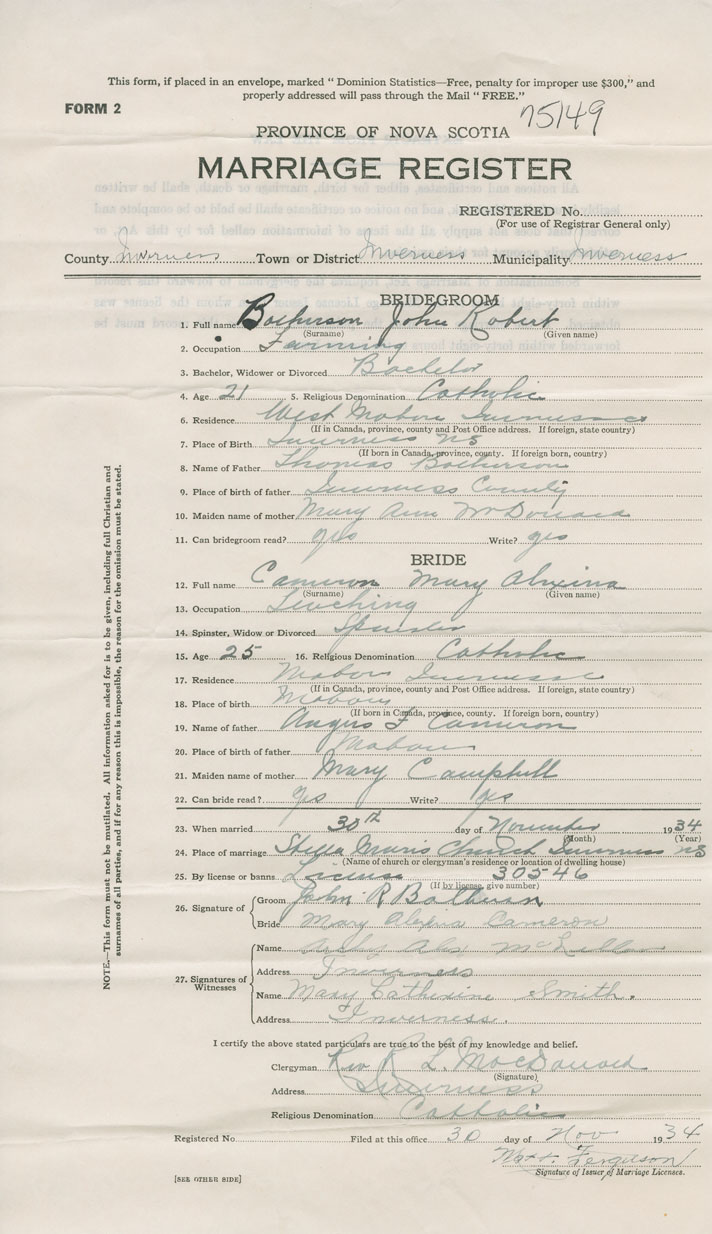 This form, if placed in an envelope, marked “ Dominion Statistics—Free, penalty for improper use $300,” and
properly addressed will pass through the Mail “ FREE.”
FORM 2
75149
PROVINCE OF NOVA SCOTIA
MARRIAGE REGISTER
REGISTERED No.
(For use of Registrar General only)
County Inverness Town or District Inverness Municipality Inverness
BRIDEGROOM
1. Full name Batherson John Robert
(Surname) (Given name)
2. Occupation Farming
3. Bachelor, Widower or Divorced Bachelor
4. Age 21 5. Religious Denomination Catholic
6. Residence West Mabou Inverness c
(If in Canada, province, county and Post Office address. If foreign, state country)
7. Place of Birth Inverness NS
(If born in Canada, province, county. If foreign born, country)
8. Name of Father Thomas Batherson
9. Place of birth of father Inverness County
10. Maiden name of mother Mary Ann McDonald
11. Can bridegroom read? yes Write? yes
BRIDE
12. Full name Cameron Mary Alexina
(Surname) (Given name)
13. Occupation Teaching
14. Spinster, Widow or Divorced Spinster
15. Age 25 16. Religious Denomination Catholic
17. Residence Mabou Inverness c
(If in Canada, province, county and Post Office address. If foreign, state country)
18. Place of birth Mabou
(If born in Canada, province, county. If foreign born, country)
19. Name of father Angus F Cameron
20. Place of birth of father Mabou
21. Maiden name of mother Mary Campbell
22. Can bride read? yes Write? yes
23. When married 30th day of November 1934
(Month) (Year)
24. Place of marriage Stella Maris Church Inverness NS
(Name of church or clergyman's residence or location of dwelling house)
25. By license or banns License 30546
(If by license, give number)
26. Signature of
Groom John R Batherson
Bride Mary Alexina Cameron
27. Signatures of Witnesses
Name Alex
Address Inverness
Name Mary Catherine Smith.
Address Inverness.
I certify the above stated particulars are true to the best of my knowledge and belief.
Clergyman Rev R L. MacDonald
(Signature)
Address Inverness
Religious Denomination Catholic
Registered No. Filed at this office 30 day of Nov 1934
Matt. Ferguson
Signature of Issuer of Marriage Licenses.
[SEE OTHER SIDE]
NOTE.—This form must not be mutilated. All information asked for is to be given, including full Christian and
surnames of all parties, and if for any reason this is impossible, the reason for the omission must be stated.